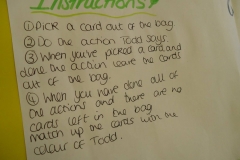 Instructions
① Pick a card out of the bag
② Do the action Todd says.
③ When you've picked a card and
done the action leave the cards
out of the bag.
④ When you have done all of
the actions and there are no
cards left in the bag
match up the cards with the
colour of Todd.